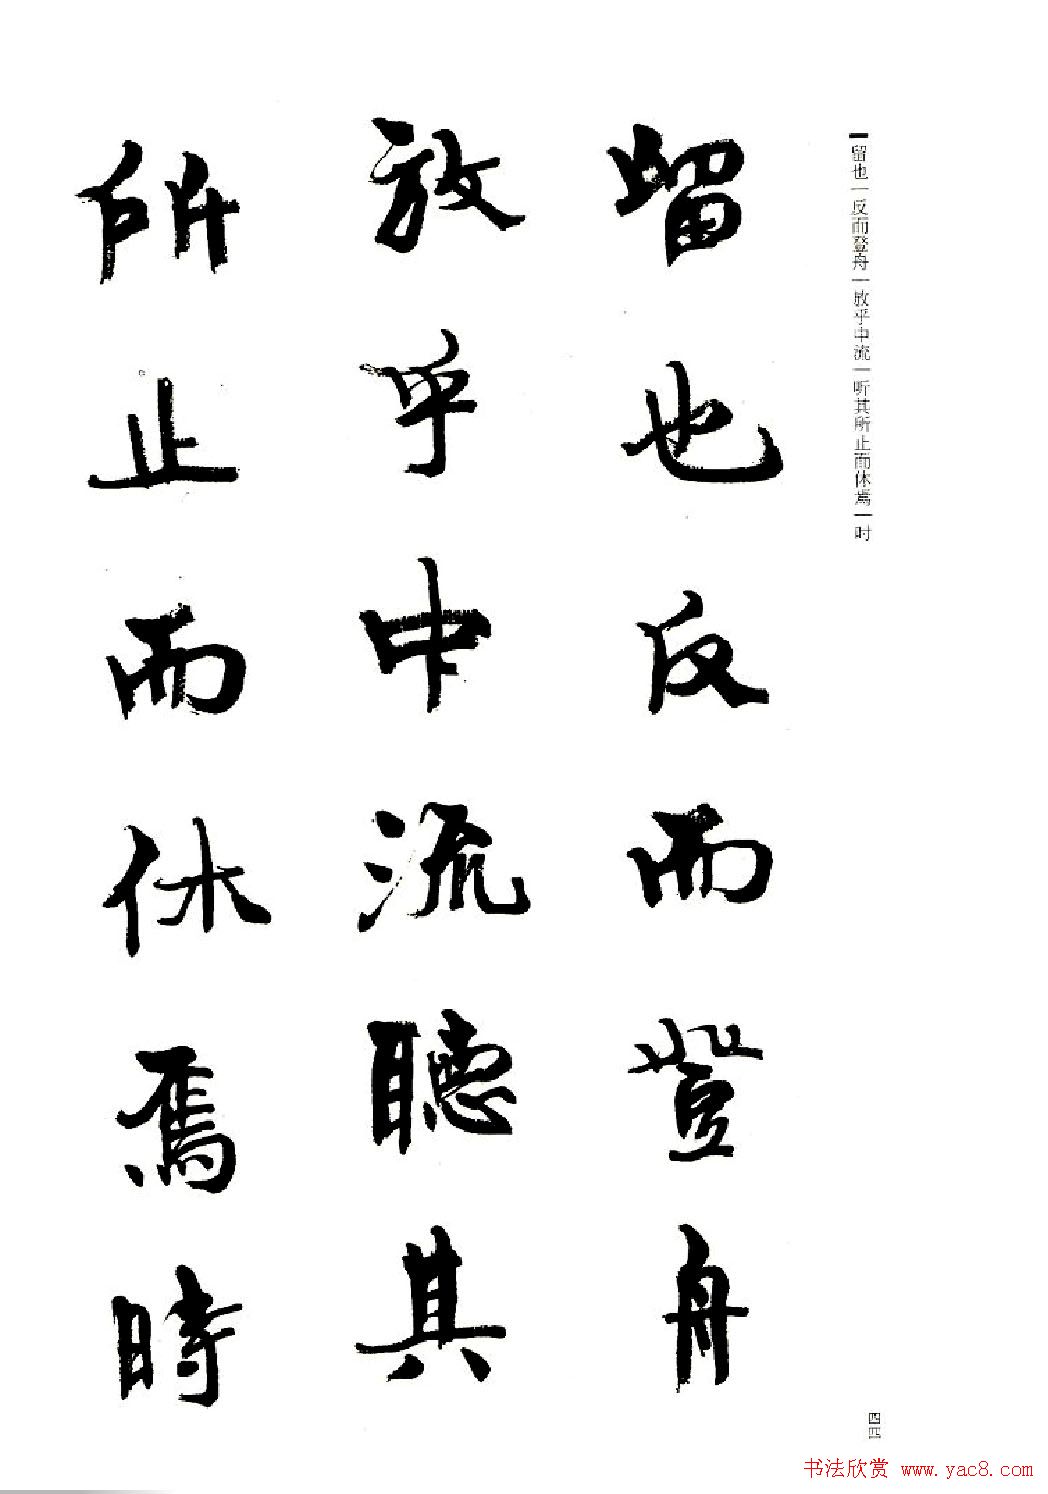 留也反而登舟
放乎中流聽其
所止而休焉時
留也一反而登舟一放乎中流一听其所止而休焉一时
四四
书法欣赏 www.yac8.com